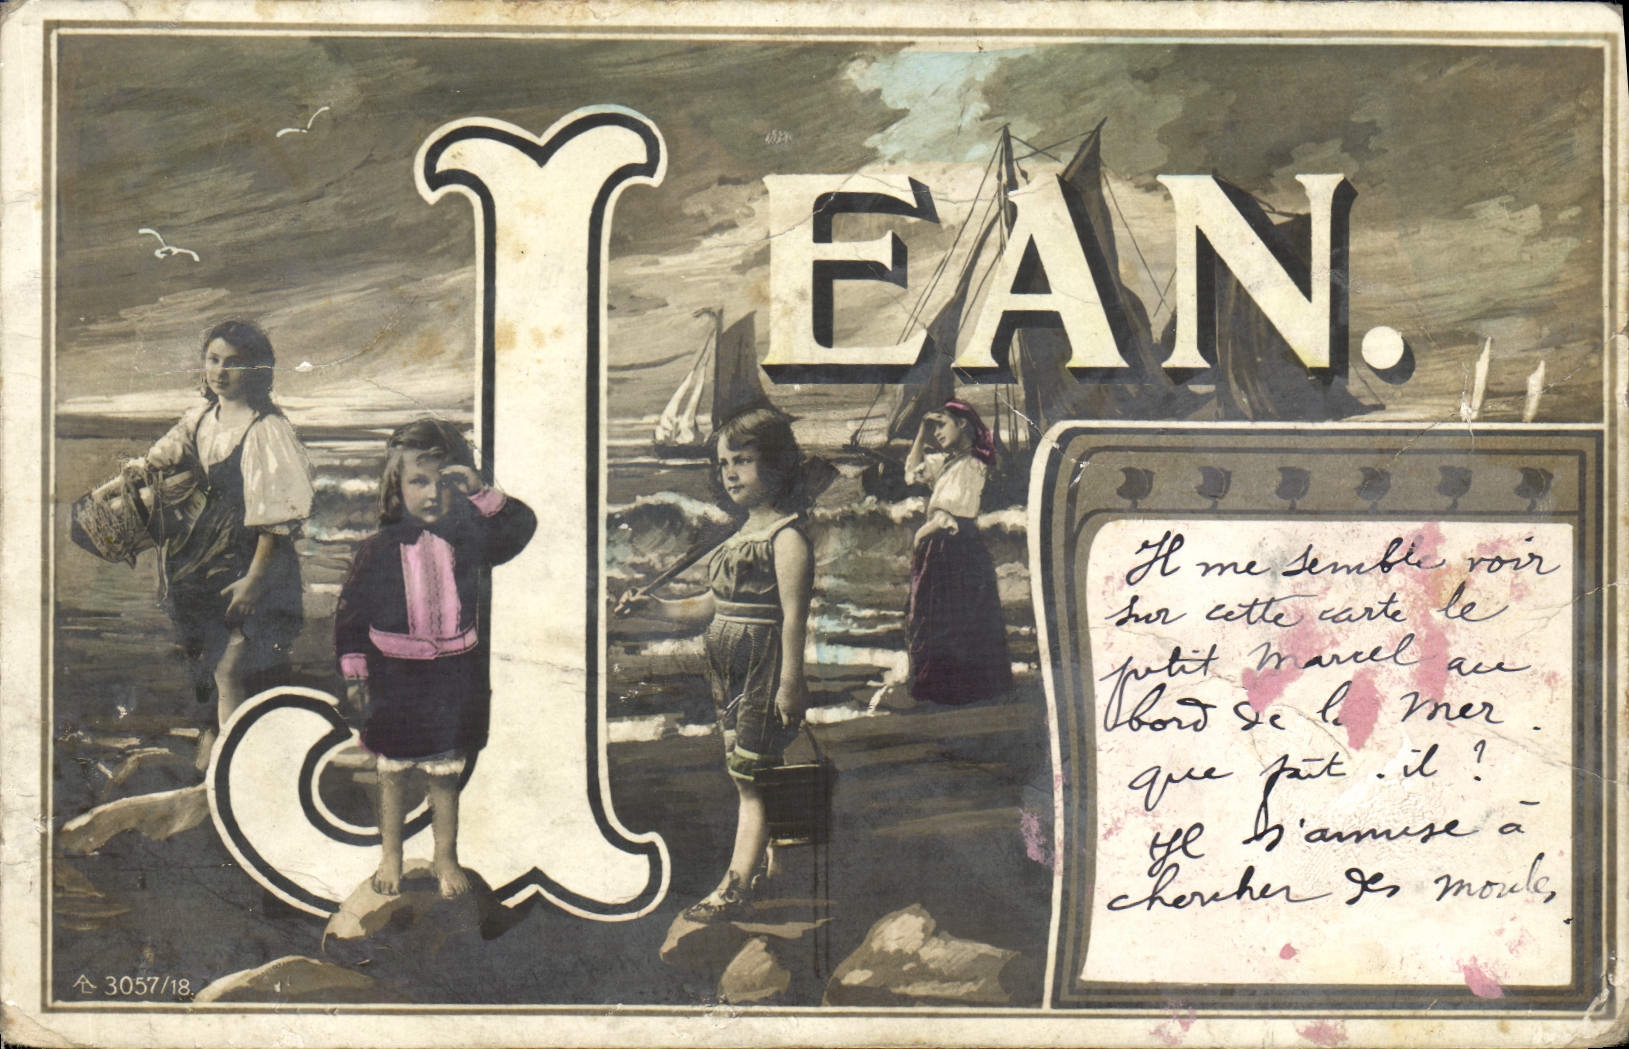 JEAN.
Il me semble voir
sur cette carte le
petit Marcel au
bord de la Mer.
que fait-il ?
Il s'amuse à
chercher des moules.
3057/18.